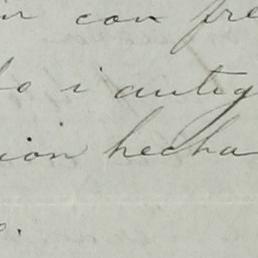 con fre
i antig
ion hecha